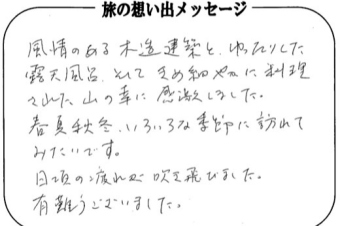 旅の想い出メッセージ
風情のある木造建築と、ゆったりした
露天風呂、そして きめ細やかに料理
された山の幸に感激しました。
春夏秋冬、いろいろな季節に訪れて
みたいです。
日頃の疲れが吹き飛びました。
有難うございました。